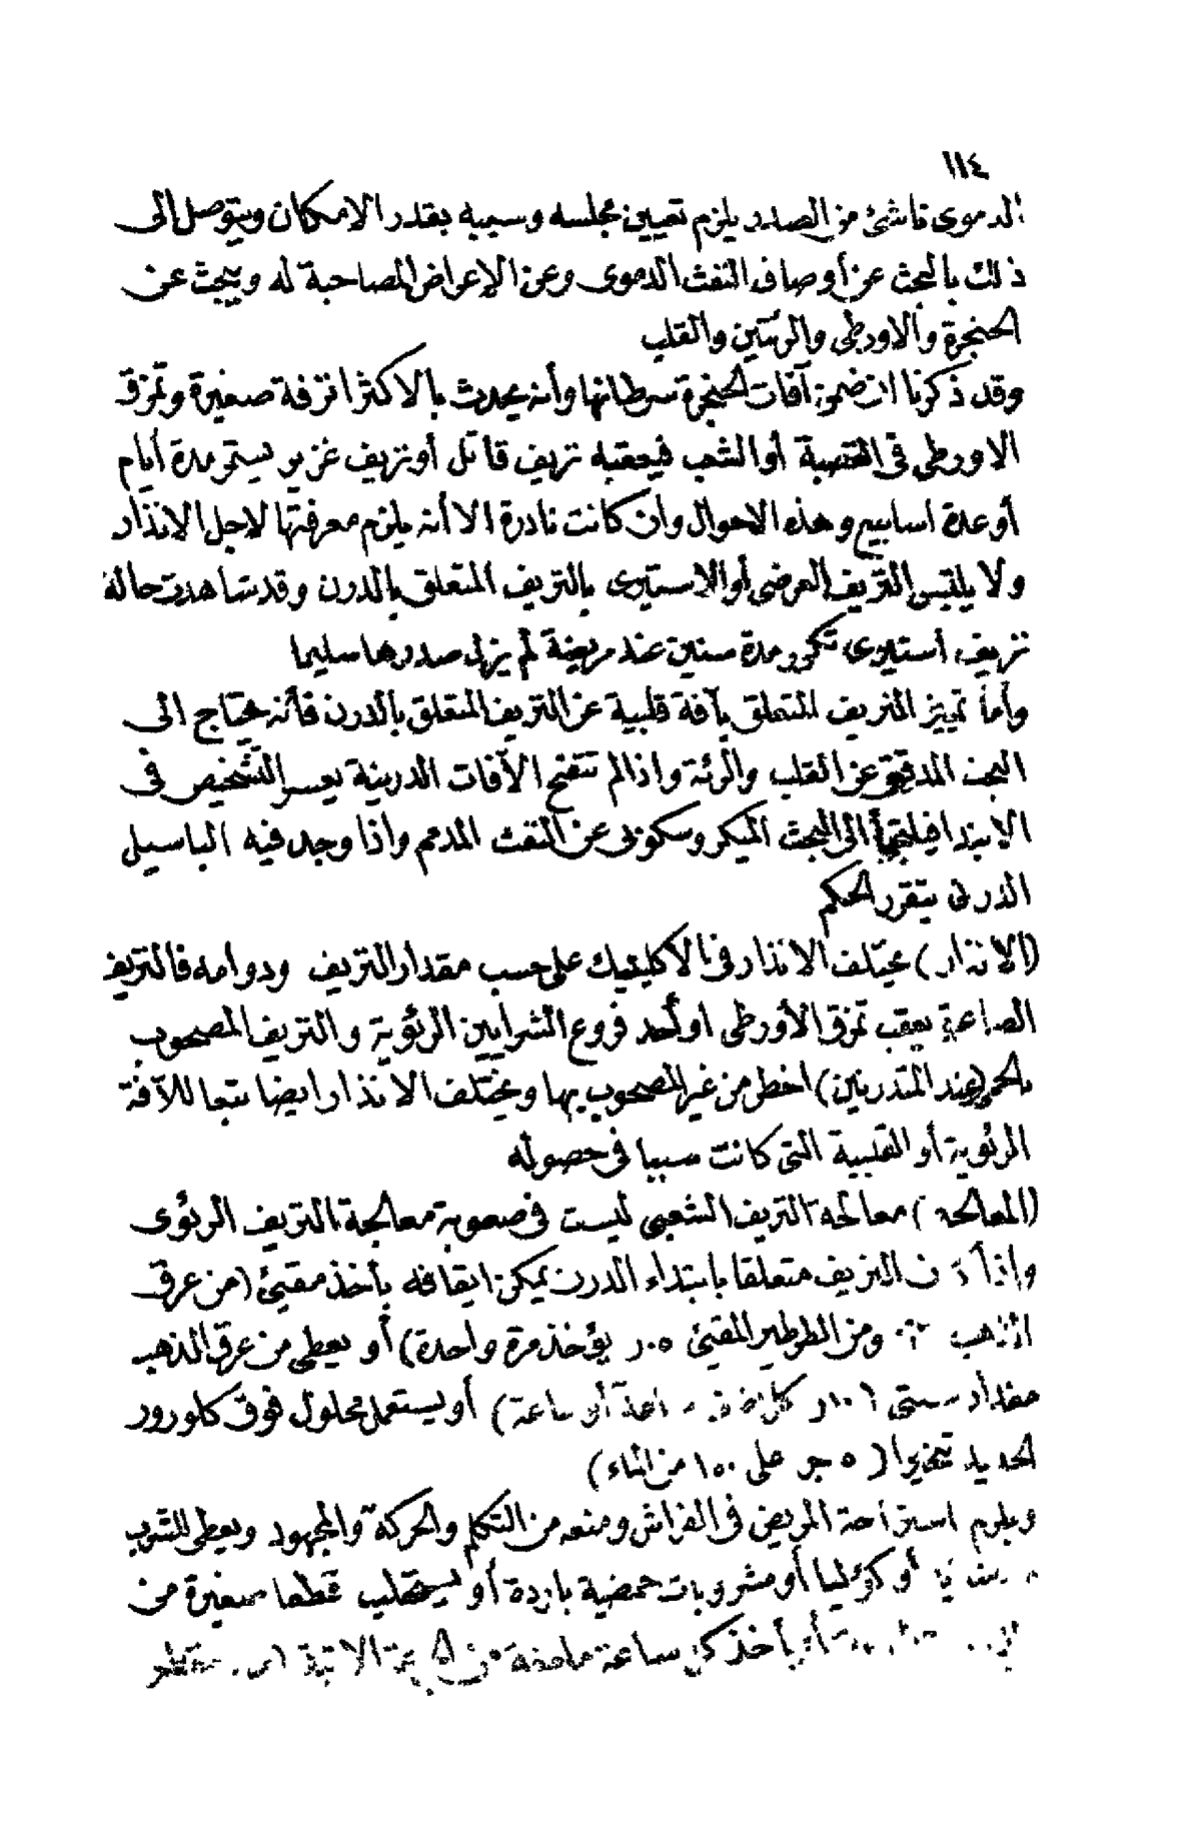 ١١٤
الدموى ناشئ من الصدر يلزم تعيين مجلسه وسببه بقدر الامكان ويتوصل الى
ذلك بالبحث عن أوصاف النفث الدموى وعن الإعراض المصاحبة له ويبحث عن
الحنجرة والاورطى والرئتين والقلب
وقد ذكرنا ان ضمن آفات الحنجرة سرطانها وأنه يحدث بالاكثر انزفة صغيرة وتمزق
الاورطى فى القصبة أو الشعب فيعقبه نزيف قاتل أو نزيف غزير يستمر مدة أيام
أو عدة اسابيع وهذه الاحوال وان كانت نادرة الا أنه يلزم معرفتها لاجل الانذار
ولا يلتبس النزيف العرضى أو الاستيرى بالنزيف المتعلق بالدرن وقد شاهدت حالة
نزيف أستيرى تكرر مدة سنين عند مريضة لم يزل صدرها سليما
وأما تمييز النزيف المتعلق بآفة قلبية عن النزيف المتعلق بالدرن فأنه يحتاج الى
البحث المدقق عن القلب والرئة واذا لم تتضح الآفات الدرنية يعسر التشخيص فى
الابتدا فيلتجأ الى البحث الميكروسكوبى عن النفث المدمم واذا وجد فيه الباسيل
الدرنى يتقرر الحكم
(الانذار) يختلف الانذار فى الاكلينيك على حسب مقدار النزيف ودوامه فالنزيف
الصاعق يعقب تمزق الأورطى او أحد فروع الشرايين الرئوية والنزيف المصحوب
بالحمى (عند المتدرنين) اخطر من غير المصحوب بها ويختلف الانذار ايضا تبعا للآفة
الرئوية أو القلبية التى كانت سببا فى حصوله
(المعالجة) معالجة النزيف الشعبى ليست فى صعوبة معالجة النزيف الرئوى
واذا كان النزيف متعلقا بابتداء الدرن يمكن ايقافه بأخذ مقيئ (من عرق
الذهب ومن الطرطير المقيئ ٠٥ر يؤخذ مرة واحدة) أو يعطى من عرق الذهب
مقدار سنتى كل نصف ساعة أو ساعة) أو يستعمل محلول فوق كلورور
الحديد تبخيرا (٥ جر على ١٥٠ من الماء)
ويلزم استراحة المريض فى الفراش ومنعه من التكلم والحركة والمجهود ويعطى للشرب
أو كؤليا أو مشروبات حمضية باردة أو ليستحلب قطعا صغيرة من
أو يأخذ كل ساعة ملعقة من الجرعة الاتية